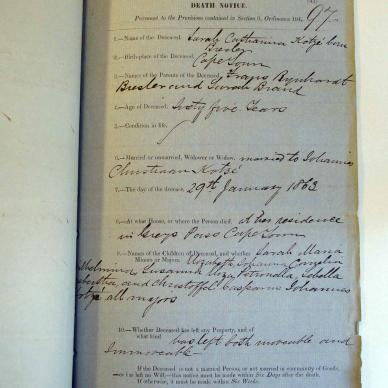 DEATH NOTICE.
Pursuant to the Provisions contained in Section 9, Ordinance 104,
97
1.—Name of the Deceased, Sarah Catharina Kotzé born
Bresler
2.—Birth-place of the Deceased, Cape Town
3.—Names of the Parents of the Deceased, Frans Rynhardt
Bresler and Sarah Brand
4.—Age of Deceased, Sixty five Years
5.—Condition in life,
6.—Married or unmarried, Widower or Widow, married to Johannes
Christiaan Kotzé
7.—The day of the decease, 29th January 1863
8.—At what House, or where the Person died, At her residence
in Greys Pass Cape Town
9.—Names of the Children of Deceased, and whether Sarah Maria
Minors or Majors, Elizabeth
Susanna Eliza Petronella
and Christoffel Johannes
all majors
10.—Whether Deceased has left any Property, and of
what kind has left both moveable and
Immoveable
If the Deceased is not a Married Person, or not married in community of Goods,
or has left no Will,—this notice must be made within Six Days after the death.
If otherwise, it must be made within Six Weeks.